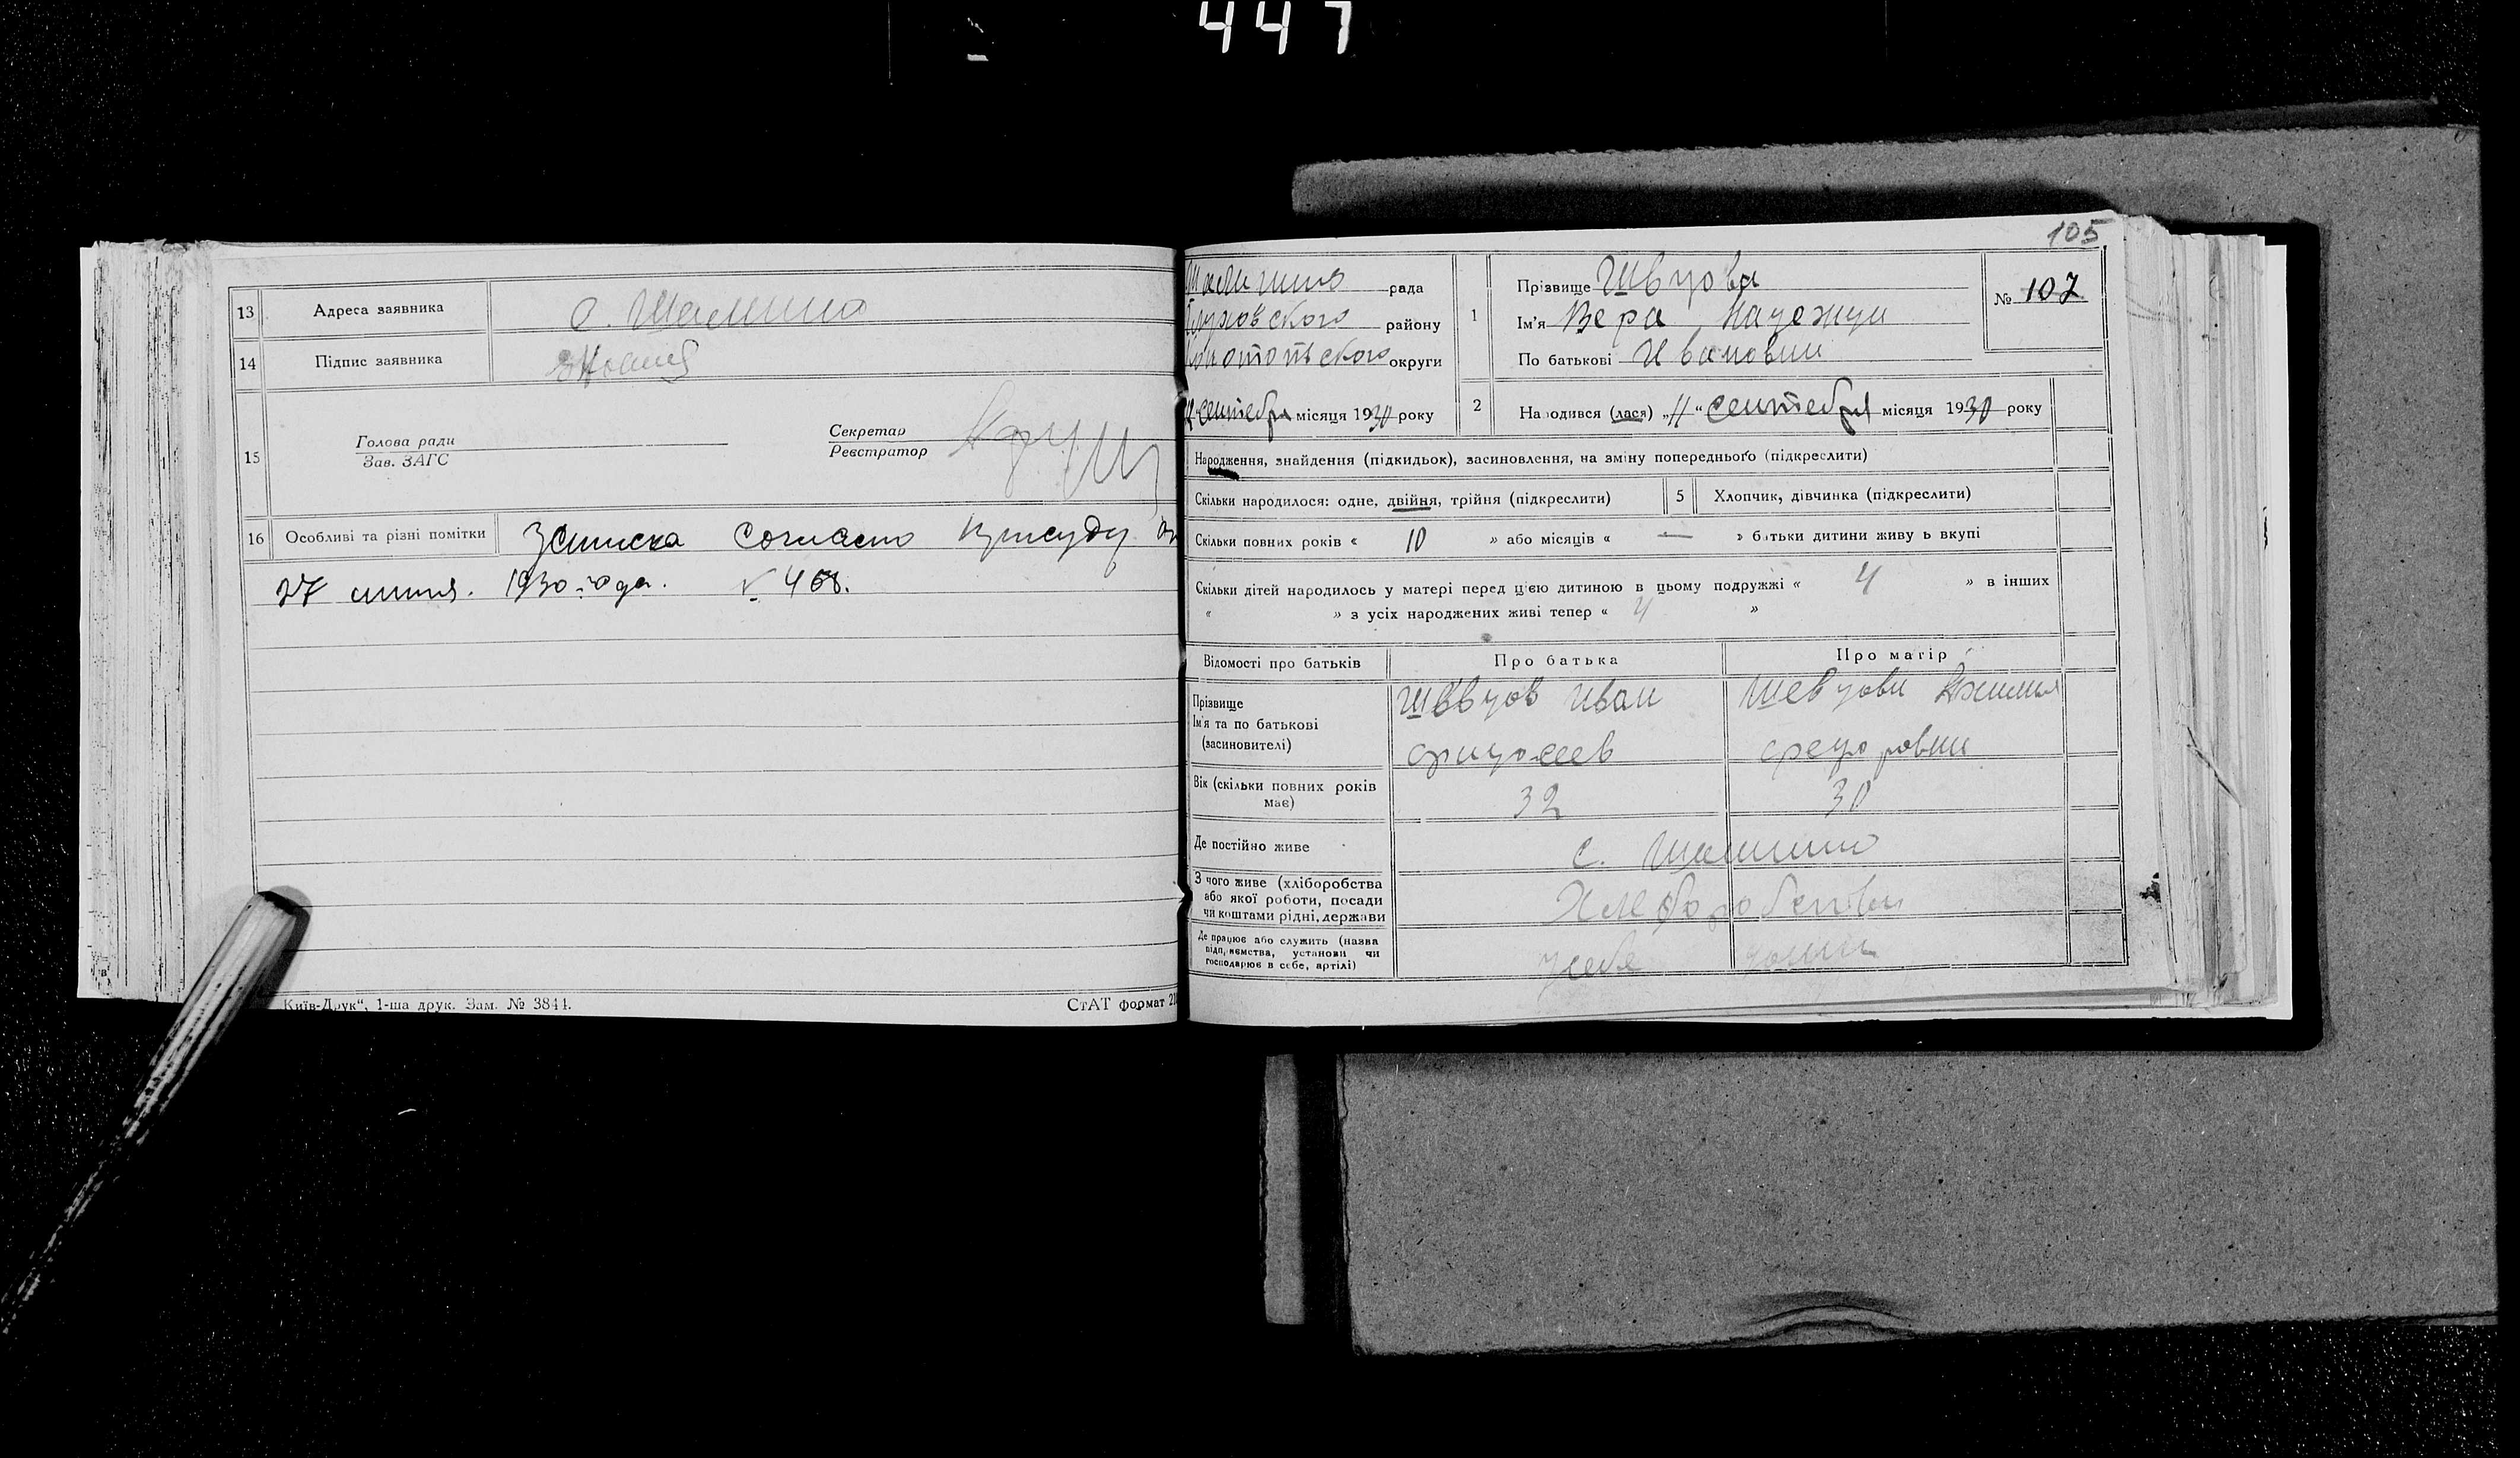 447
13 Адреса заявника с. Шалимо
14 Підпис заявника
15 Голова ради
Зав. ЗАГС
Секретар
Реєстратор
16 Особливі та різні помітки Записка согласно присуду
27 1930 года. № 468.
Київ-Друк“, 1-ша друк. Зам. № 3844.
СтАТ формат
105
рада
Глуховского району
Конотопьского округи
сентебря місяця 1930 року
1 Прізвище Швцова
Ім'я Вера Надежда
По батькові Ивановни
№ 107
2 Народився (лася) „11“ сентебря місяця 1930 року
Народження, знайдення (підкидьок), засиновлення, на зміну попереднього (підкреслити)
Скільки народилося: одне, двійня, трійня (підкреслити) 5 Хлопчик, дівчинка (підкреслити)
Скільки повних років « 10 » або місяців « — » батьки дитини живуть вкупі
Скільки дітей народилось у матері перед цією дитиною в цьому подружжі « 4 » в інших
« » з усіх народжених живі тепер « 4 »
Відомості про батьків Про батька Про матір
Прізвище
Ім'я та по батькові
(засиновителі)
Шевцов Иван
Шевцова
федоровни
Вік (скільки повних років має) 32 30
Де постійно живе с.
З чого живе (хліборобства
або якої роботи, посади
чи коштами рідні, держави
Де працює або служить (назва
підприємства, установи чи
господарює в себе, артілі)
у себе дома